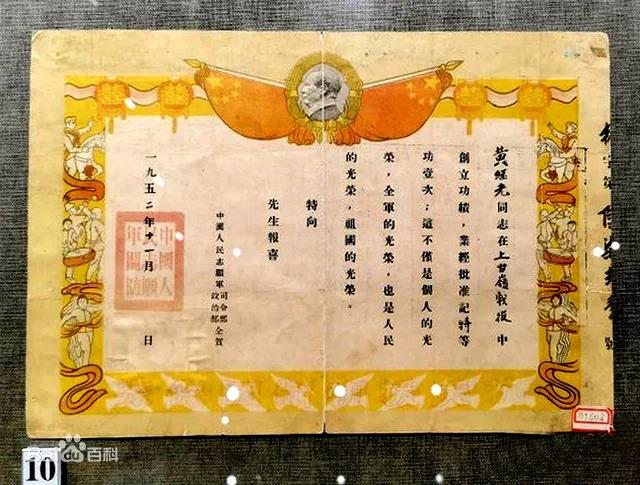 黃继光同志在上甘嶺战役中
創立功績，業經批准記特等
功壹次；這不僅是個人的光
榮，全軍的光榮，也是人民
的光榮，祖國的光榮。
特向
先生報喜
中國人民志願軍
司令部
政治部
仝賀
一九五二年十一月 日
中國人
民志願
軍關防
號
01608
10
Bai du 百科